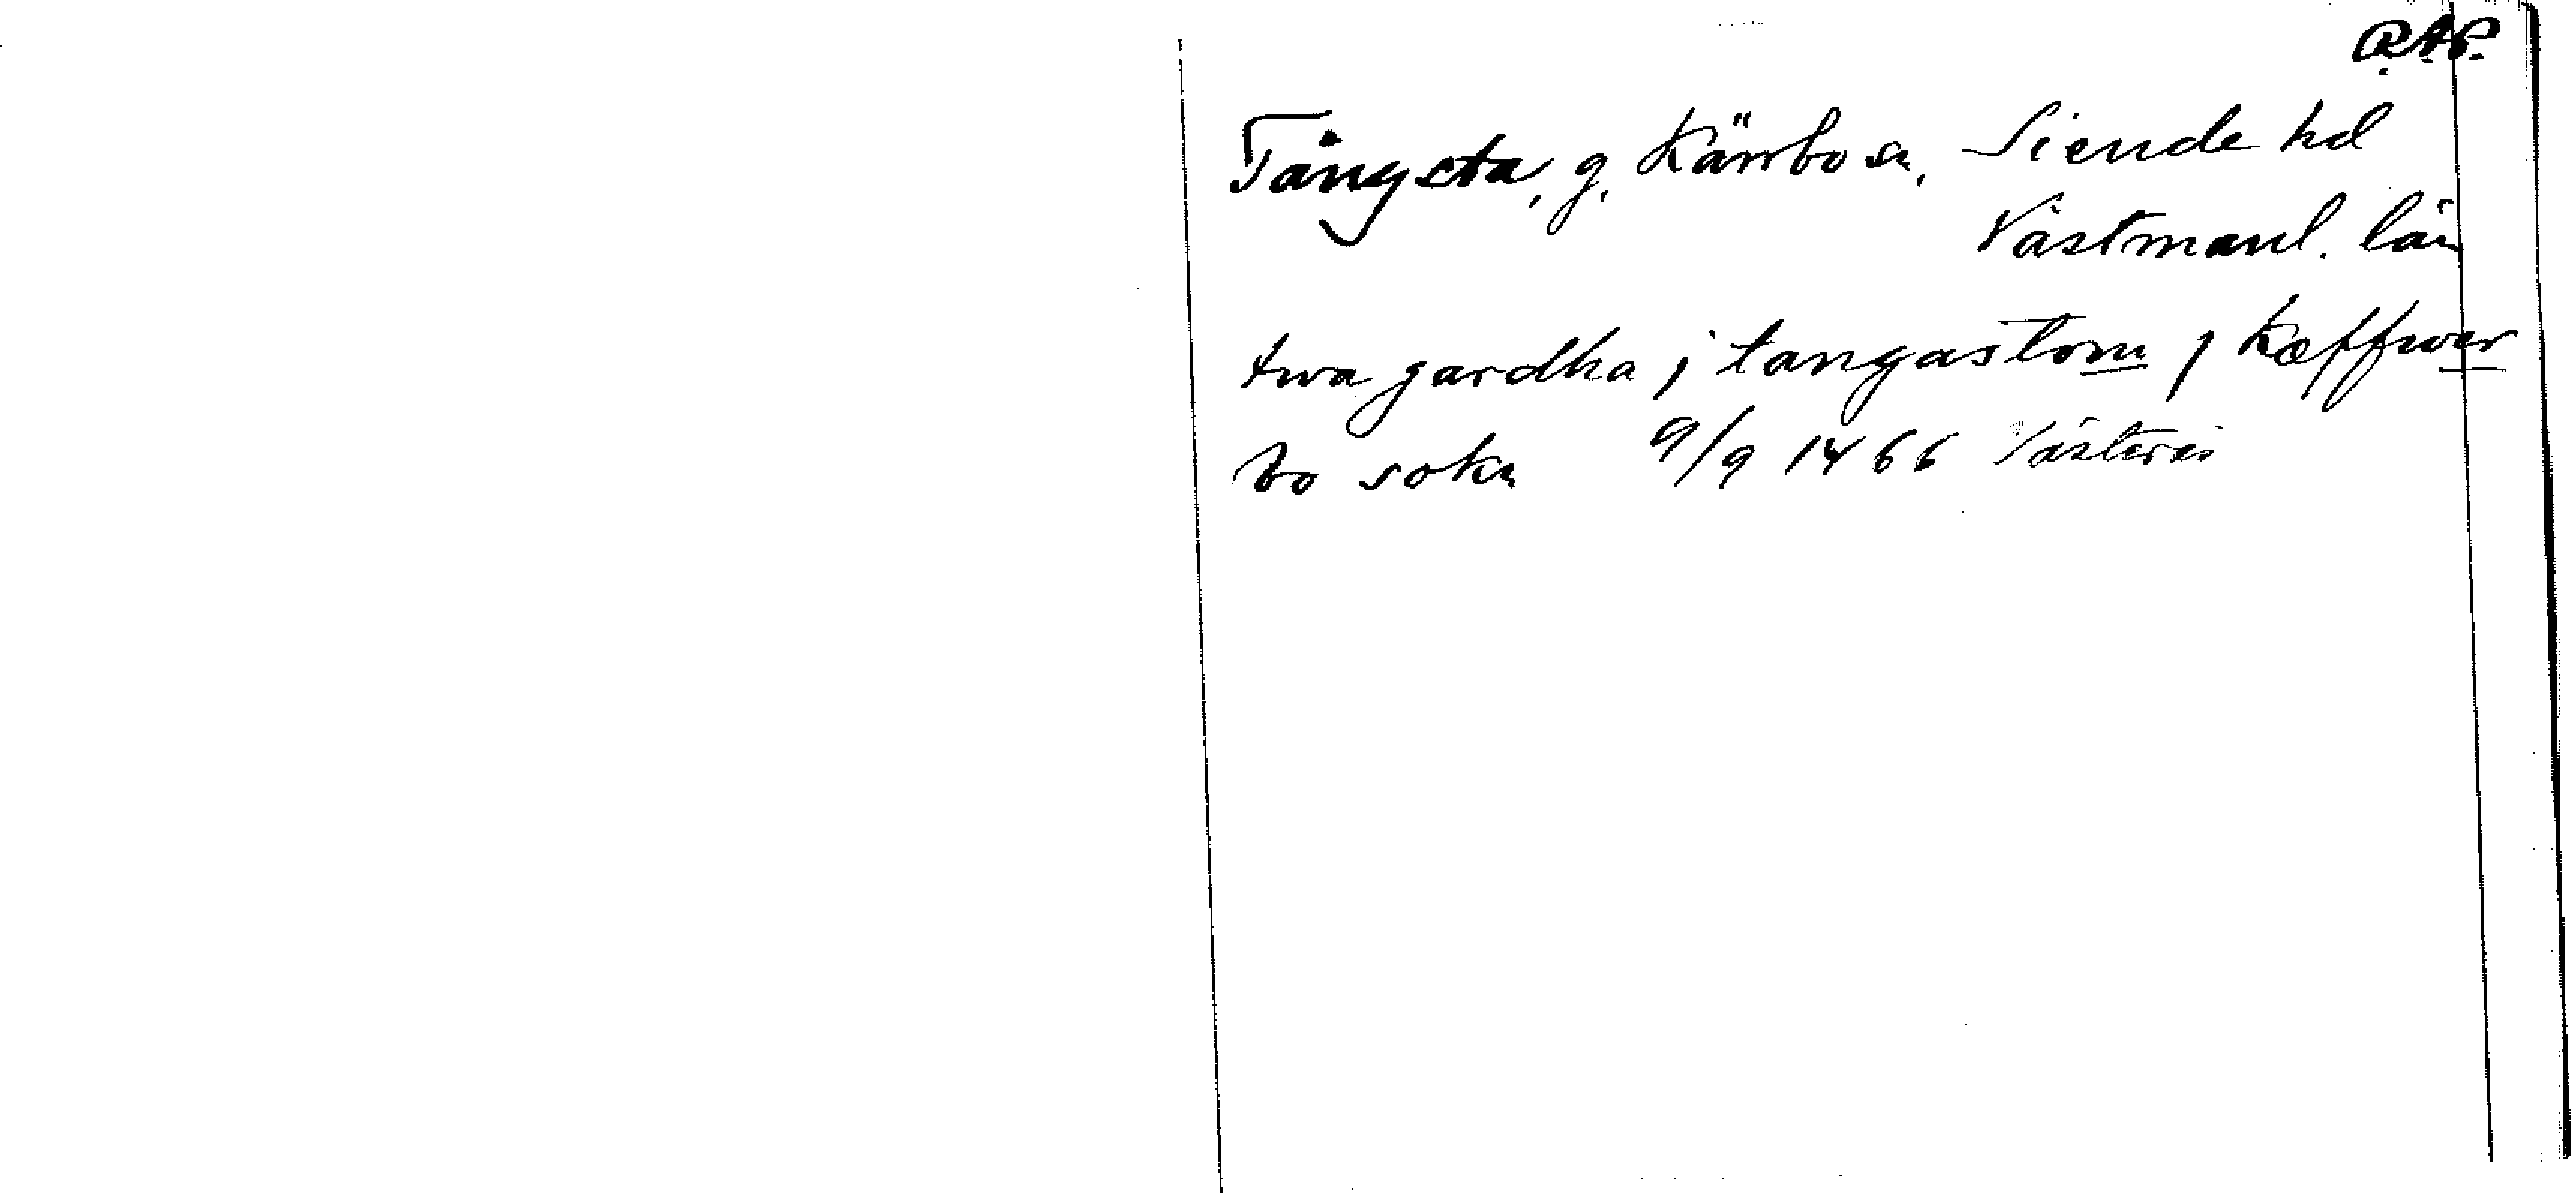 R.A.P.
Tångsta, g. Kärrbo sn, Siende hd
Västmanl. län
twa gardha j tangastom j Kæffwer
bo sokn 9/9 1466 Västerås